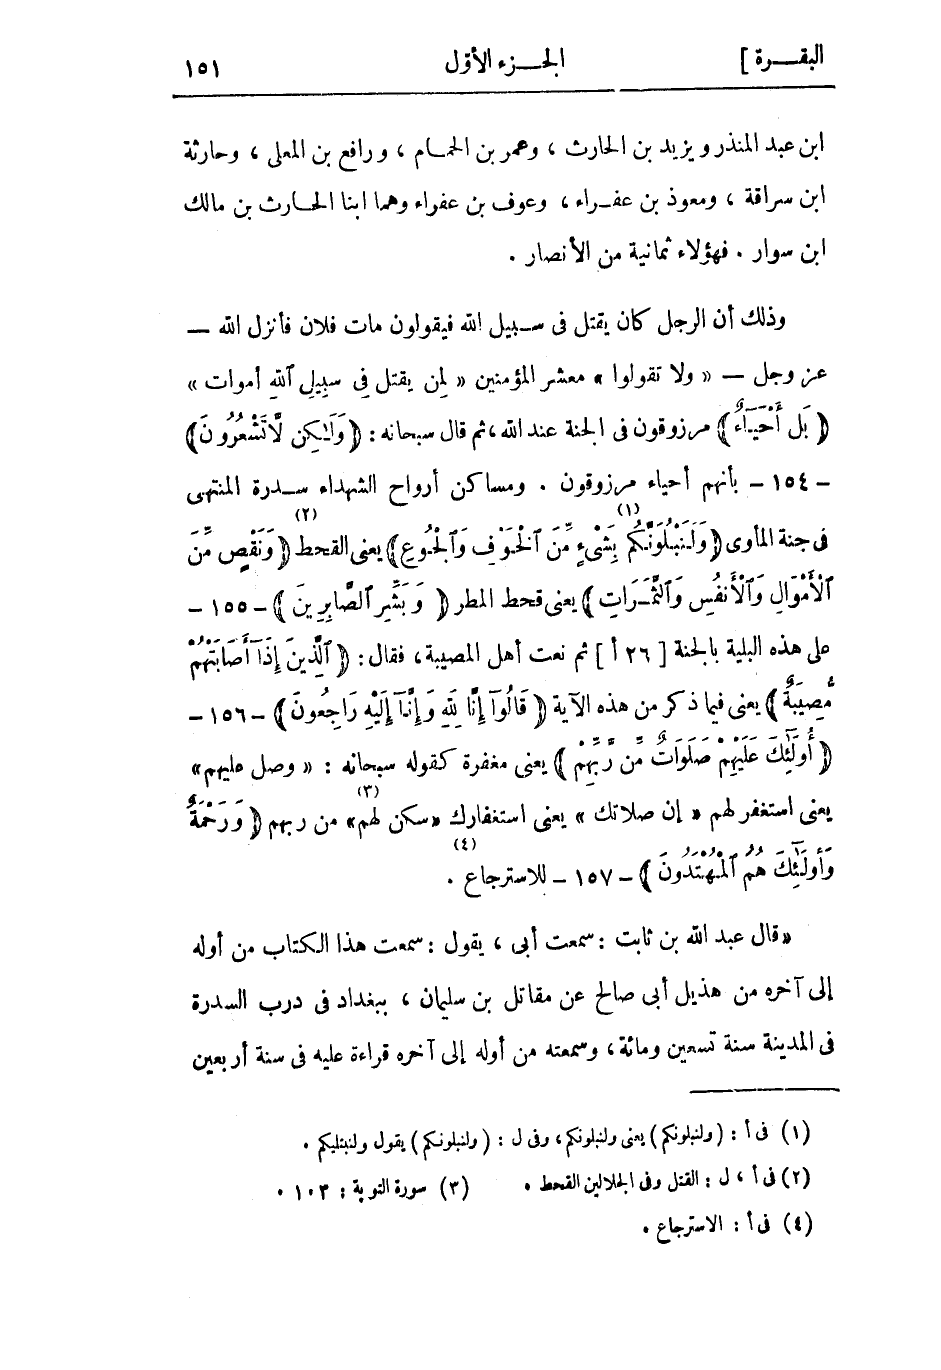 البقـــرة ] الجـــزء الأوّل ١٥١
ابن عبد المنذر ويزيد بن الحارث ، وعمر بن الحمـام ، ورافع بن المعلى ، وحارثة
ابن سراقة ، ومعوذ بن عفـراء ، وعوف بن عفراء وهما ابنا الحـارث بن مالك
ابن سوار . فهؤلاء ثمانية من الأنصار .
وذلك أن الرجل كان يقتل فى سـبيل الله فيقولون مات فلان فأنزل الله —
عز وجل — « ولا تقولوا » معشر المؤمنين « لِمن يقتل فِى سبِيلِ ٱللهِ أموات »
﴿ بَل أَحْيَآءٌ ﴾ مرزوقون فى الجنة عند الله ، ثم قال سبحانه : ﴿ وَلَـٰكِن لَّا تَشْعُرُونَ ﴾
– ١٥٤ – بأنهم أحياء مرزوقون . ومساكن أرواح الشهداء سـدرة المنتهى
فى جنة المأوى ﴿ وَلَنَبْلُوَنَّكُم (١) بِشَىْءٍ مِّنَ ٱلْخَوْفِ وَٱلْجُوعِ ﴾ يعنى القحط (٢) ﴿ وَنَقْصٍ مِّنَ
ٱلْأَمْوَالِ وَٱلْأَنفُسِ وَٱلثَّمَرَاتِ ﴾ يعنى قحط المطر ﴿ وَبَشِّرِ ٱلصَّابِرِينَ ﴾ – ١٥٥ –
على هذه البلية بالجنة [ ٢٦ أ ] ثم نعت أهل المصيبة ، فقال : ﴿ ٱلَّذِينَ إِذَآ أَصَابَتْهُمْ
مُّصِيبَةٌ ﴾ يعنى فيما ذكر من هذه الآية ﴿ قَالُوٓا إِنَّا لِلَّهِ وَإِنَّآ إِلَيْهِ رَاجِعُونَ ﴾ – ١٥٦ –
﴿ أُولَـٰٓئِكَ عَلَيْهِمْ صَلَوَاتٌ مِّن رَّبِّهِمْ ﴾ يعنى مغفرة كقوله سبحانه : « وصل عليهم »
يعنى استغفر لهم « إن صلاتك » يعنى استغفارك « سكن لهم » (٣) من ربهم ﴿ وَرَحْمَةٌ
وَأُولَـٰٓئِكَ هُمُ ٱلْمُهْتَدُونَ ﴾ – ١٥٧ – للاسترجاع (٤) .
« قال عبد الله بن ثابت : سمعت أبى ، يقول : سمعت هذا الكتاب من أوله
إلى آخره من هذيل أبى صالح عن مقاتل بن سليمان ، ببغداد فى درب السدرة
فى المدينة سنة تسعين ومائة ، وسمعته من أوله إلى آخره قراءة عليه فى سنة أربعين
(١) فى أ : ( ولنبلونكم ) يعنى ولنبلونكم ، وفى ل : ( ولنبلونكم ) يقول ولنبتليكم .
(٢) فى أ ، ل : القتل وفى الجلالين القحط . (٣) سورة التوبة : ١٠٣ .
(٤) فى أ : الاسترجاع .